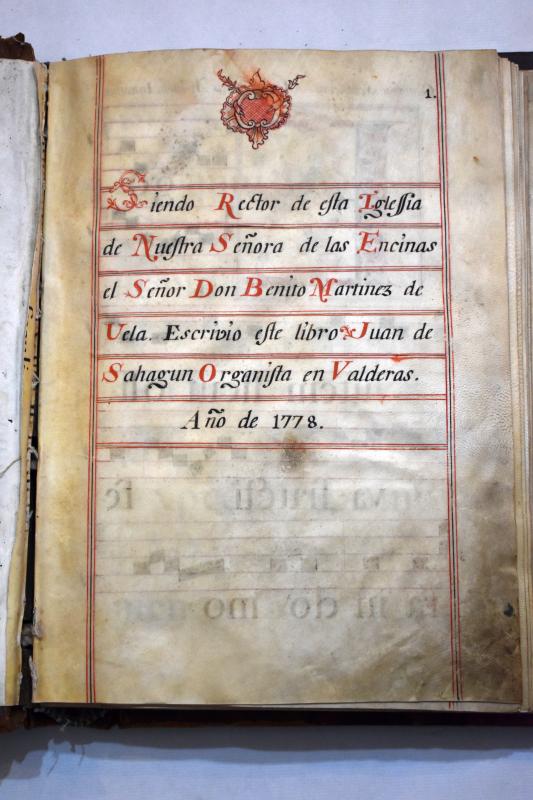 1.
Siendo Rector de esta Iglessia
de Nuestra Señora de las Encinas
el Señor Don Benito Martinez de
Vela. Escrivio este libro Juan de
Sahagun Organista en Valderas.
Año de 1778.